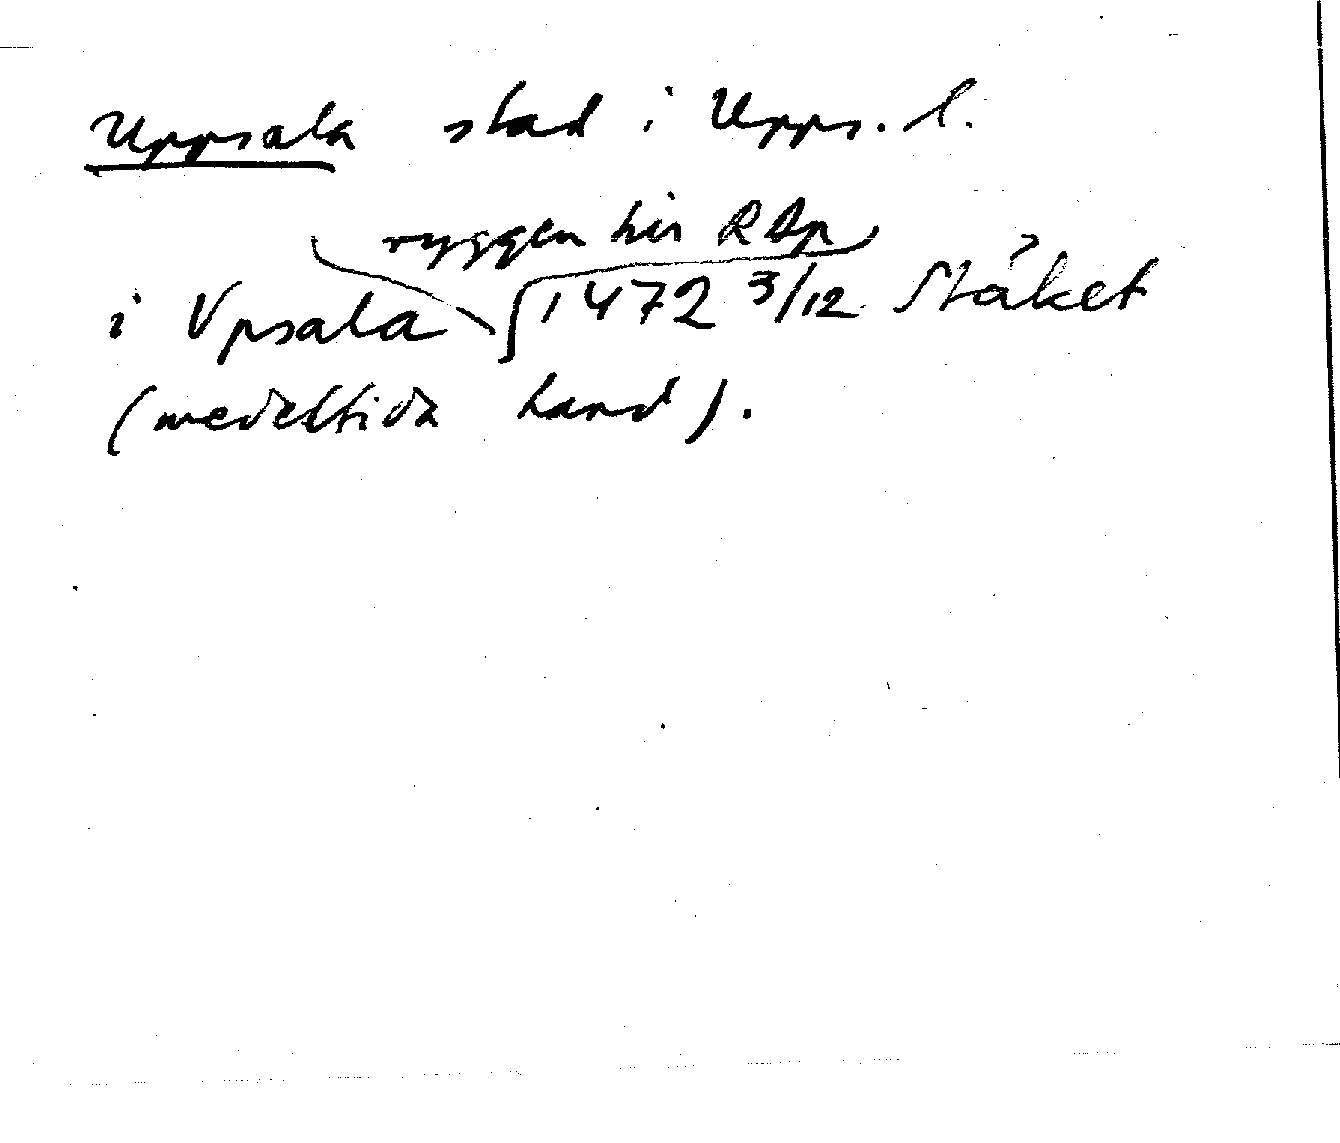 Uppsala stad i Upps. l.
ryggen hir RAp
i Vpsala 1472 3/12 Stäket
(medeltida hand).